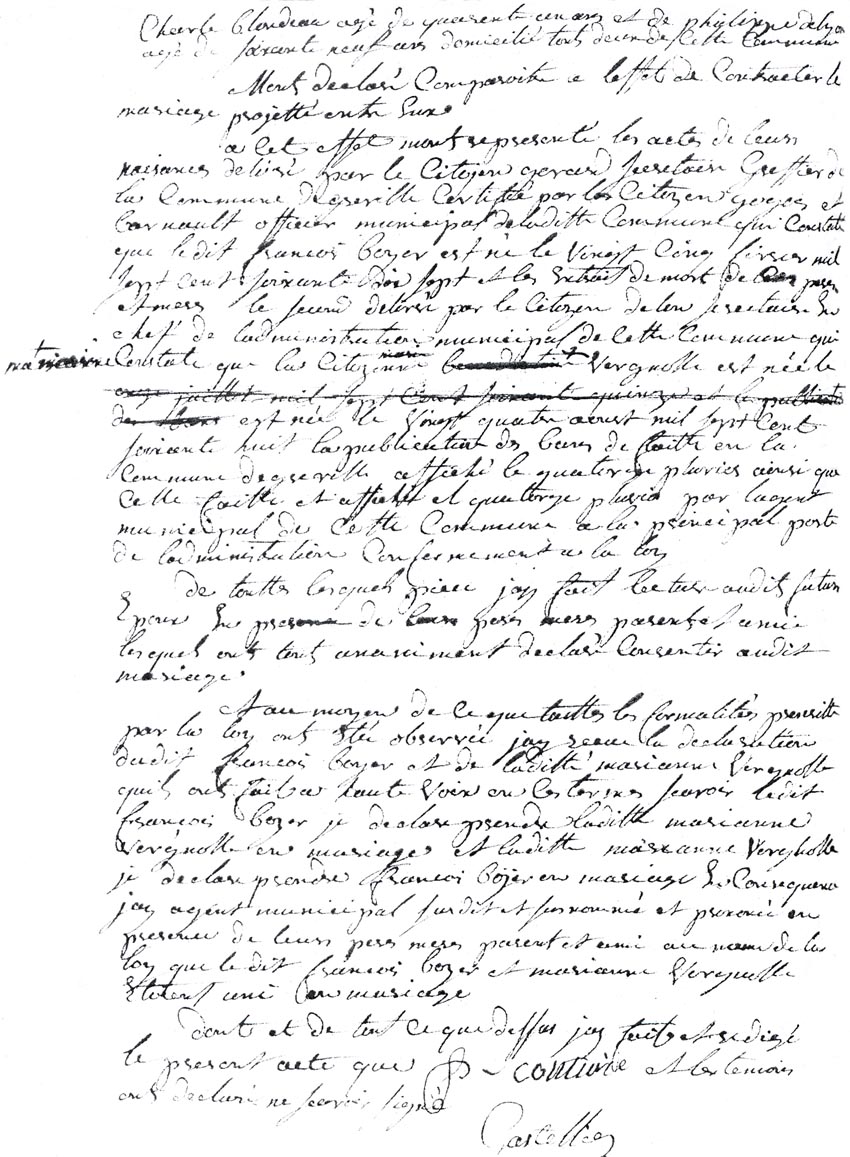 Charle blondeau agé de quarente un ans et de philippe delon
agé de soixante neuf ans domicilié tous deux de Cette Commune
Mont declaré Comparoitre a leffet de Contracter le
mariage projetté entre Eux
a Cet effet mont representé les actes de leurs
naisances delivré par le Citoyen gerard secretaire Greffier de
la Commune degreville Certiffié par les Citoyen et
barnault officier municipal deladitte Commune qui Constate
que ledit francois boyer est né le Vingt Cinq fevrier mil
sept Cent soixante sept et les Extrait de mort de peres
et meres le second delivré par le Citoyen delon secretaire En
chef de ladministration municipal de Cette Commune qui
marianne Constate que la Citoyenne Vergnolle est née le
onze juillet mil sept Cent soixante quinze et la publication
des bans est née le Vingt quatre aoust mil sept Cent
soixante huit la publication des bans de faitte en la
Commune degreville affiché le quatorze pluvios ainsi que
Celle faitte et affiché et quatorze pluvios par lagent
municipal de Cette Commune a la principal porte
de ladministration Conformement a la loy
de touttes lesquels piece jay fait lecture audit futur
Epoux En presence de leurs peres meres parents et amie
lesquel ont tous unaniment declaré Consentir audit
mariage.
Et au moyen de Ce que touttes les formalités prescritte
par la loy ont Eté observée jay receue la declaration
dudit francois boyer et de laditte marianne Vergnolle
quils ont fait a haute Voix en Ces termes scavoir ledit
francois boyer je declare prendre laditte marianne
Vergnolle en mariage et laditte marianne Vergnolle
je declare prendre francois boyer en mariage En Consequence
jay agent municipal susdit et surnommé et prononcé en
presence de leurs peres meres parent et ami au nom de la
loy que ledit francois boyer et marianne Vergnolle
Etoient uni en mariage
dont et de tout Ce que dessus jay fait et redigé
le present acte que et les temoins
ont declaré ne scavoir signé